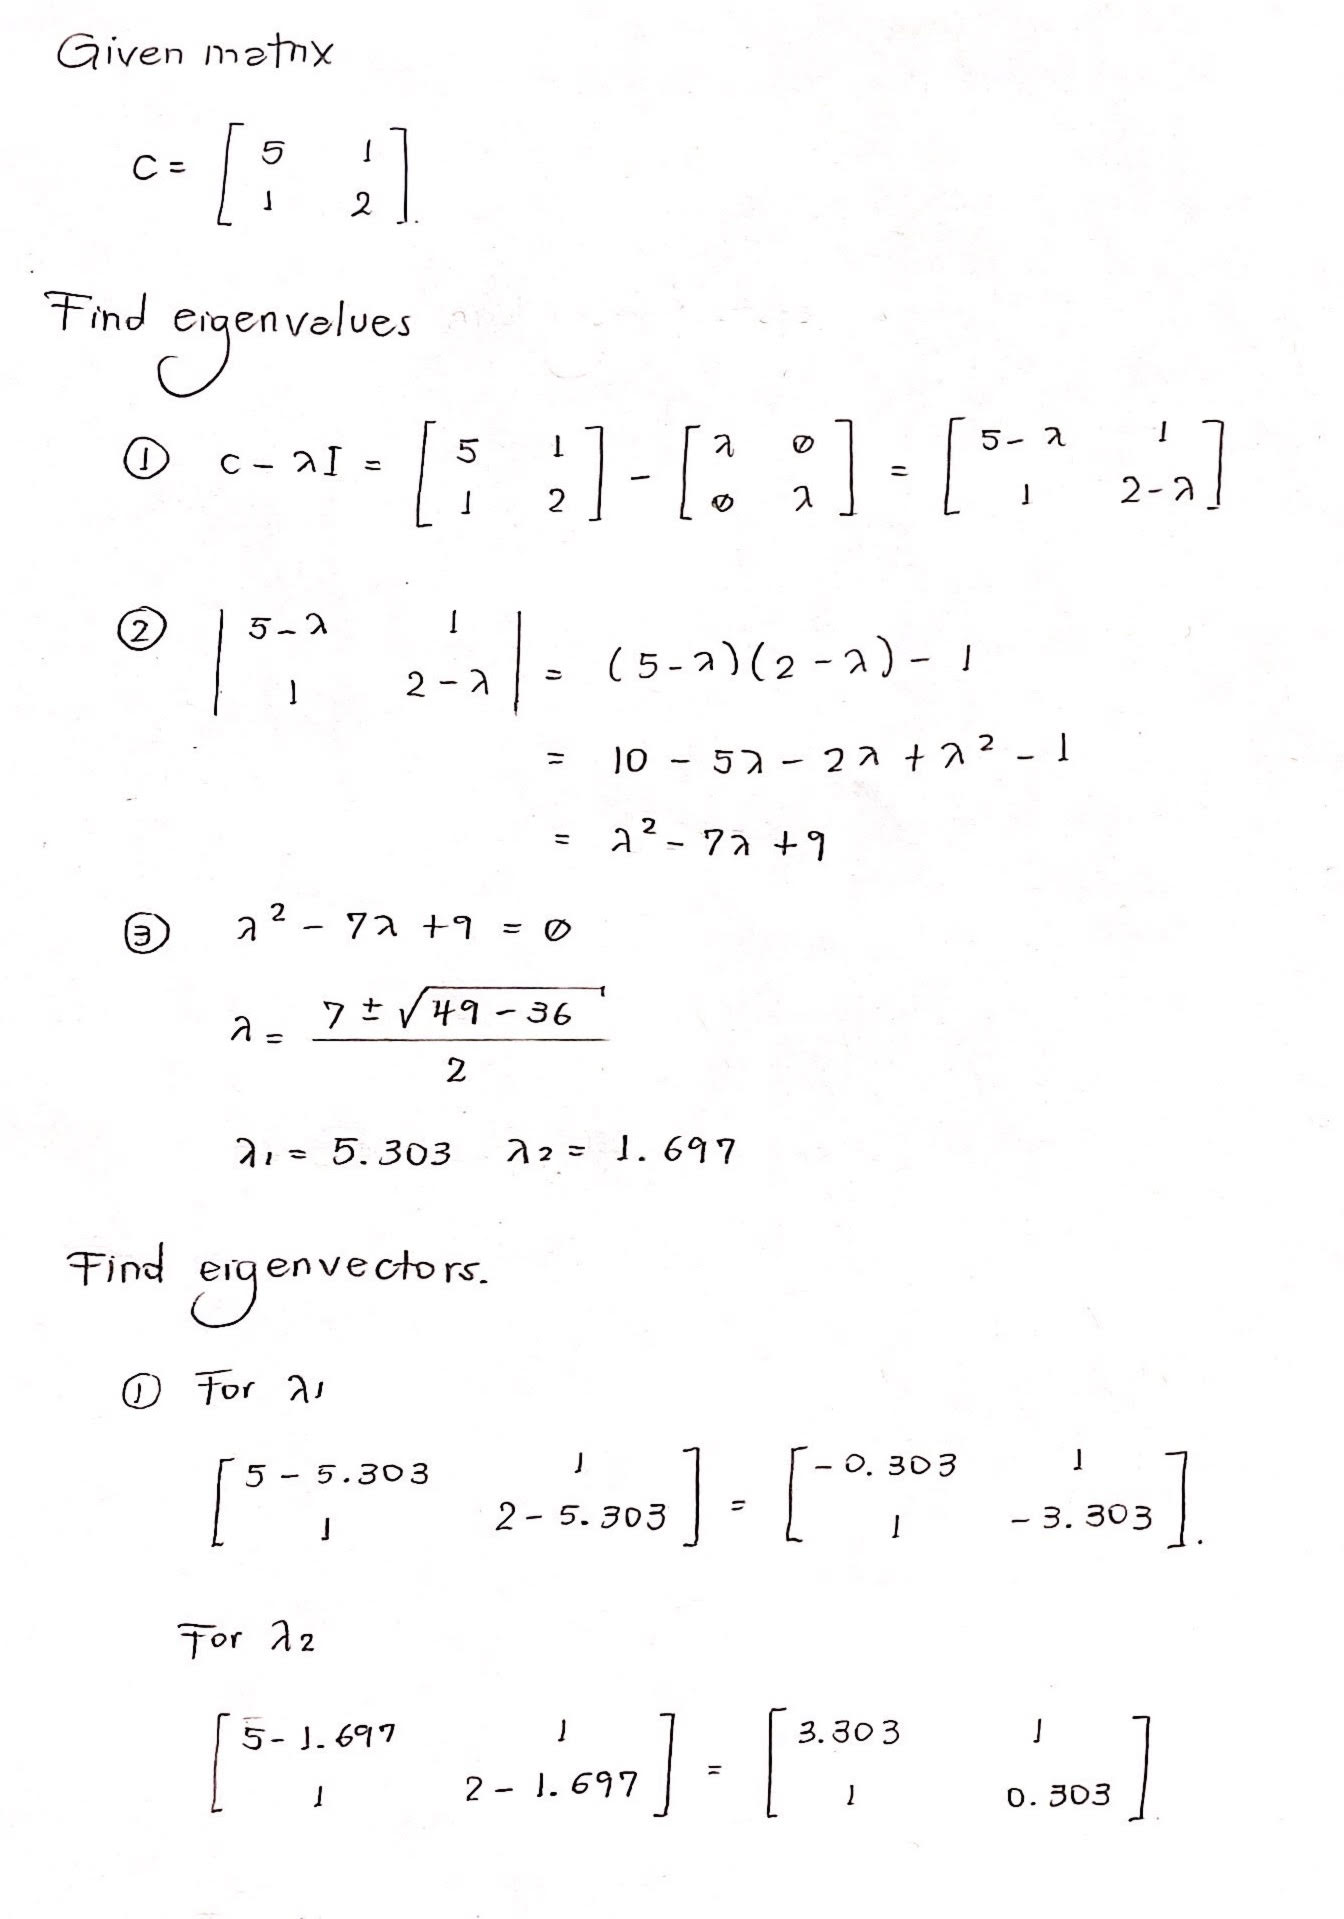 Given matrix
C = [ 5 1
1 2 ].
Find eigenvalues
① C - λI = [ 5 1
1 2 ] - [ λ ∅
∅ λ ] = [ 5-λ 1
1 2-λ ]
② | 5-λ 1
1 2-λ | = (5-λ)(2-λ) - 1
= 10 - 5λ - 2λ + λ² - 1
= λ² - 7λ + 9
③ λ² - 7λ + 9 = ∅
λ = (7 ± √(49 - 36)) / 2
λ1 = 5.303 λ2 = 1.697
Find eigenvectors.
① For λ1
[ 5 - 5.303 1
1 2 - 5.303 ] = [ -0.303 1
1 -3.303 ].
For λ2
[ 5 - 1.697 1
1 2 - 1.697 ] = [ 3.303 1
1 0.303 ]